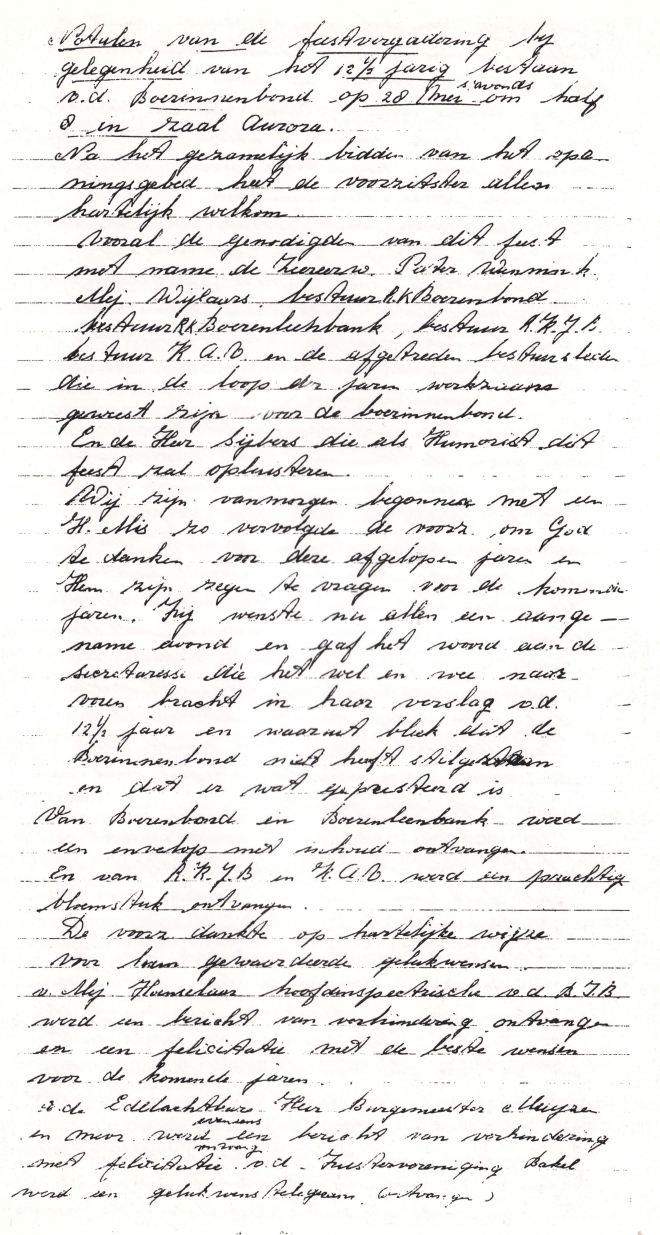 Notulen van de feestvergadering bij
gelegenheid van het 12½ jarig bestaan
v.d. Boerinnenbond op 28 Mei s'avonds om half
8 in zaal Aurora.
Na het gezamelijk bidden van het ope
ningsgebed heet de voorzitster allen
hartelijk welkom
Vooral de genodigden van dit feest
met name de Zeereerw. Pater
Mej. Wijlaars, bestuur R.K Boerenbond
bestuur R.K Boerenleenbank, bestuur R.K.J.B
bestuur K.A.V. en de afgetreden bestuursleden
die in de loop der jaren werkzaam
geweest zijn voor de boerinnenbond.
En de Heer Sijbers die als Humorist dit
feest zal opluisteren.
Wij zijn vanmorgen begonnen met een
H. Mis zo vervolgde de voorz. om God
te danken voor deze afgelopen jaren en
Hem zijn zegen te vragen voor de komende
jaren. Zij wenste nu allen een aange-
name avond en gaf het woord aan de
secretaresse die het wel en wee naar
voren bracht in haar verslag v.d.
12½ jaar en waaruit bleek dat de
Boerinnenbond niet heeft stilgestaan
en dat er wat gepresteerd is
Van Boerenbond en Boerenleenbank werd
een envelop met inhoud ontvangen.
En van R.K.J.B en K.A.V. werd een prachtig
bloemstuk ontvangen.
De voorz dankte op hartelijke wijze
voor hun gewaardeerde gelukwensen.
v. Mej Hoenselaar hoofdinspectrische v.d B.J.B
werd een bericht van verhindering ontvangen
en een felicitatie met de beste wensen
voor de komende jaren.
v.de Edelachtbare Heer Burgemeester
en mevr werd eveneens een bericht van verhindering
met felicitatie ontvang v.d. Zustervereniging Bakel
werd een gelukwenstelegram (ontvangen)